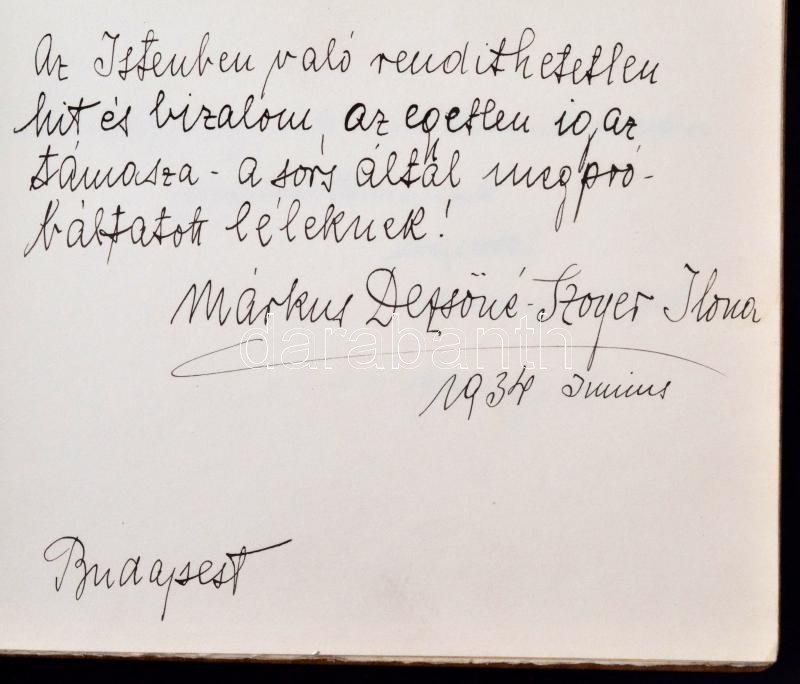 Az Istenben való rendithetetlen
hit és bizalom, az egetlen igaz
támasza - a sors által megpró-
báltatott léleknek!
Márkus Dezsőné - Szoyer Ilona
darabanth
1934 Junius
Budapest